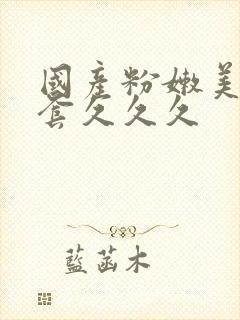 國產粉嫩美
套久久久
藍菡木